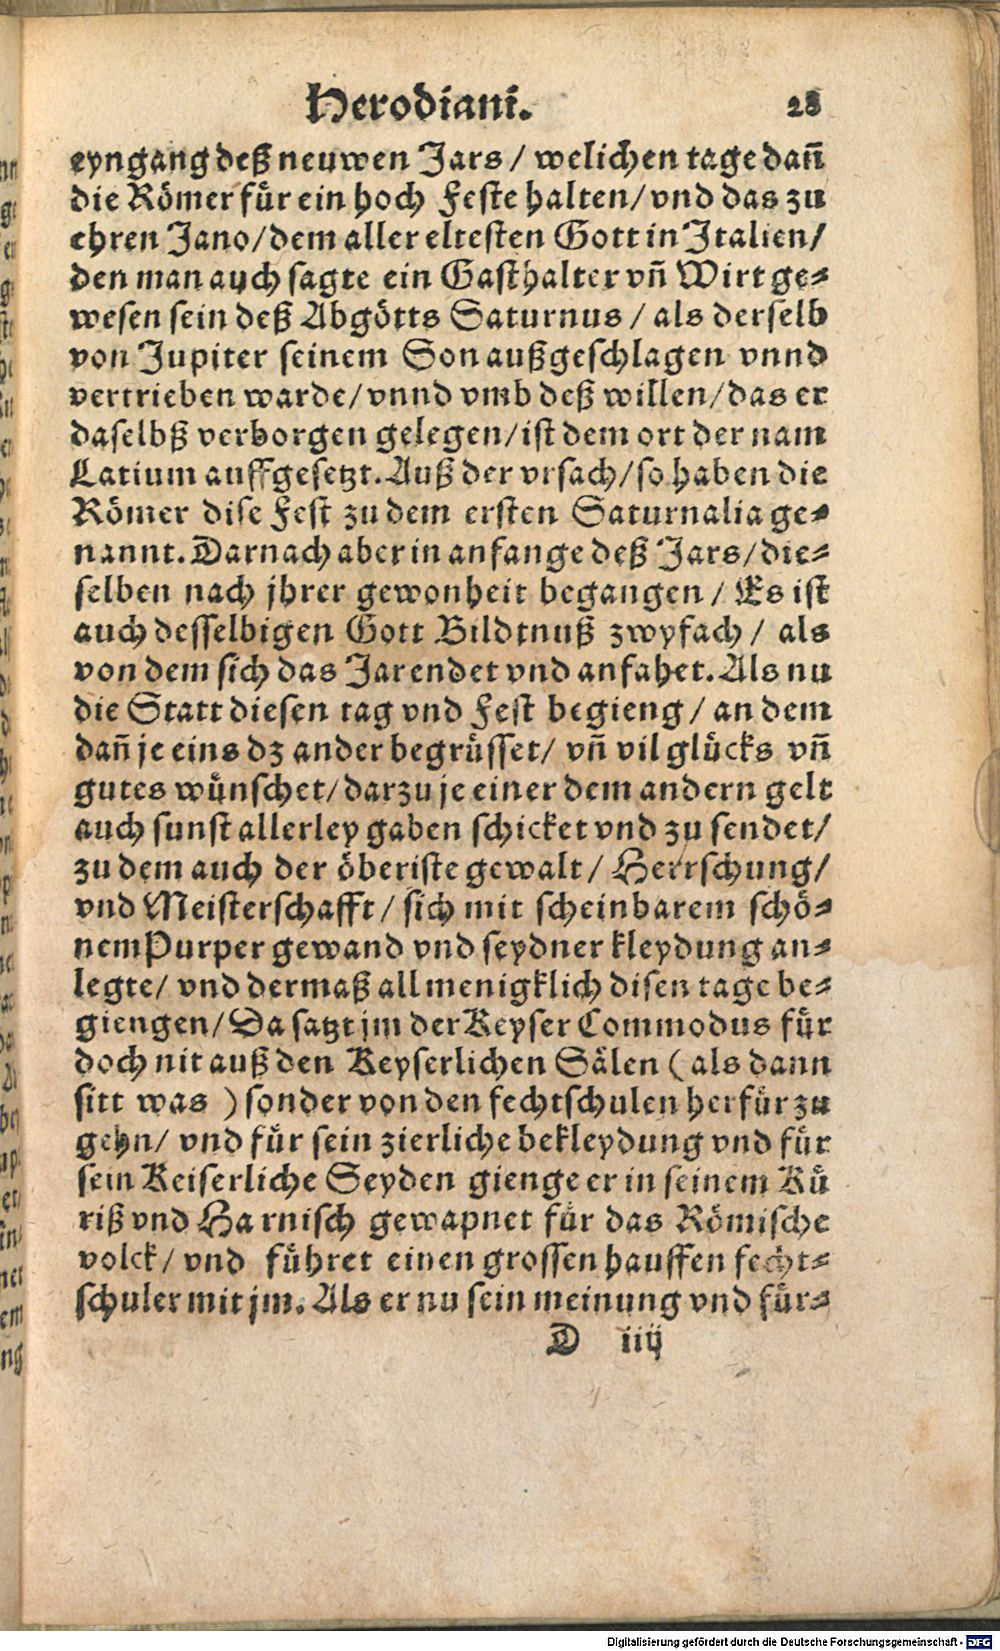 Herodiani. 28
eyngang deß neuwen Jars / welichen tage dañ
die Römer fuͤr ein hoch Feste halten / vnd das zu
ehren Jano / dem aller eltesten Gott in Italien /
den man auch sagte ein Gasthalter vñ Wirt ge-
wesen sein deß Abgötts Saturnus / als derselb
von Jupiter seinem Son außgeschlagen vnnd
vertrieben warde / vnnd vmb deß willen / das er
daselbß verborgen gelegen / ist dem ort der nam
Latium auffgesetzt. Auß der vrsach / so haben die
Römer dise Fest zu dem ersten Saturnalia ge-
nannt. Darnach aber in anfange deß Jars / die-
selben nach jhrer gewonheit begangen / Es ist
auch desselbigen Gott Bildtnuß zwyfach / als
von dem sich das Jar endet vnd anfahet. Als nu
die Statt diesen tag vnd Fest begieng / an dem
dañ je eins dz ander begruͤsset / vñ vil gluͤcks vñ
gutes wuͤnschet / darzu je einer dem andern gelt
auch sunst allerley gaben schicket vnd zu sendet /
zu dem auch der öberiste gewalt / Herrschung /
vnd Meisterschafft / sich mit scheinbarem schö-
nem Purper gewand vnd seydner kleydung an-
legte / vnd dermaß allmenigklich disen tage be-
giengen / Da satzt jm der Keyser Commodus fuͤr
doch nit auß den Keyserlichen Sälen ( als dann
sitt was ) sonder von den fechtschulen herfuͤr zu
gehn / vnd fuͤr sein zierliche bekleydung vnd fuͤr
sein Keiserliche Seyden gienge er in seinem Kuͤ
riß vnd Harnisch gewapnet fuͤr das Römische
volck / vnd fuͤhret einen grossen hauffen fecht-
schuler mit jm. Als er nu sein meinung vnd fuͤr-
D iiij
Digitalisierung gefördert durch die Deutsche Forschungsgemeinschaft - DFG